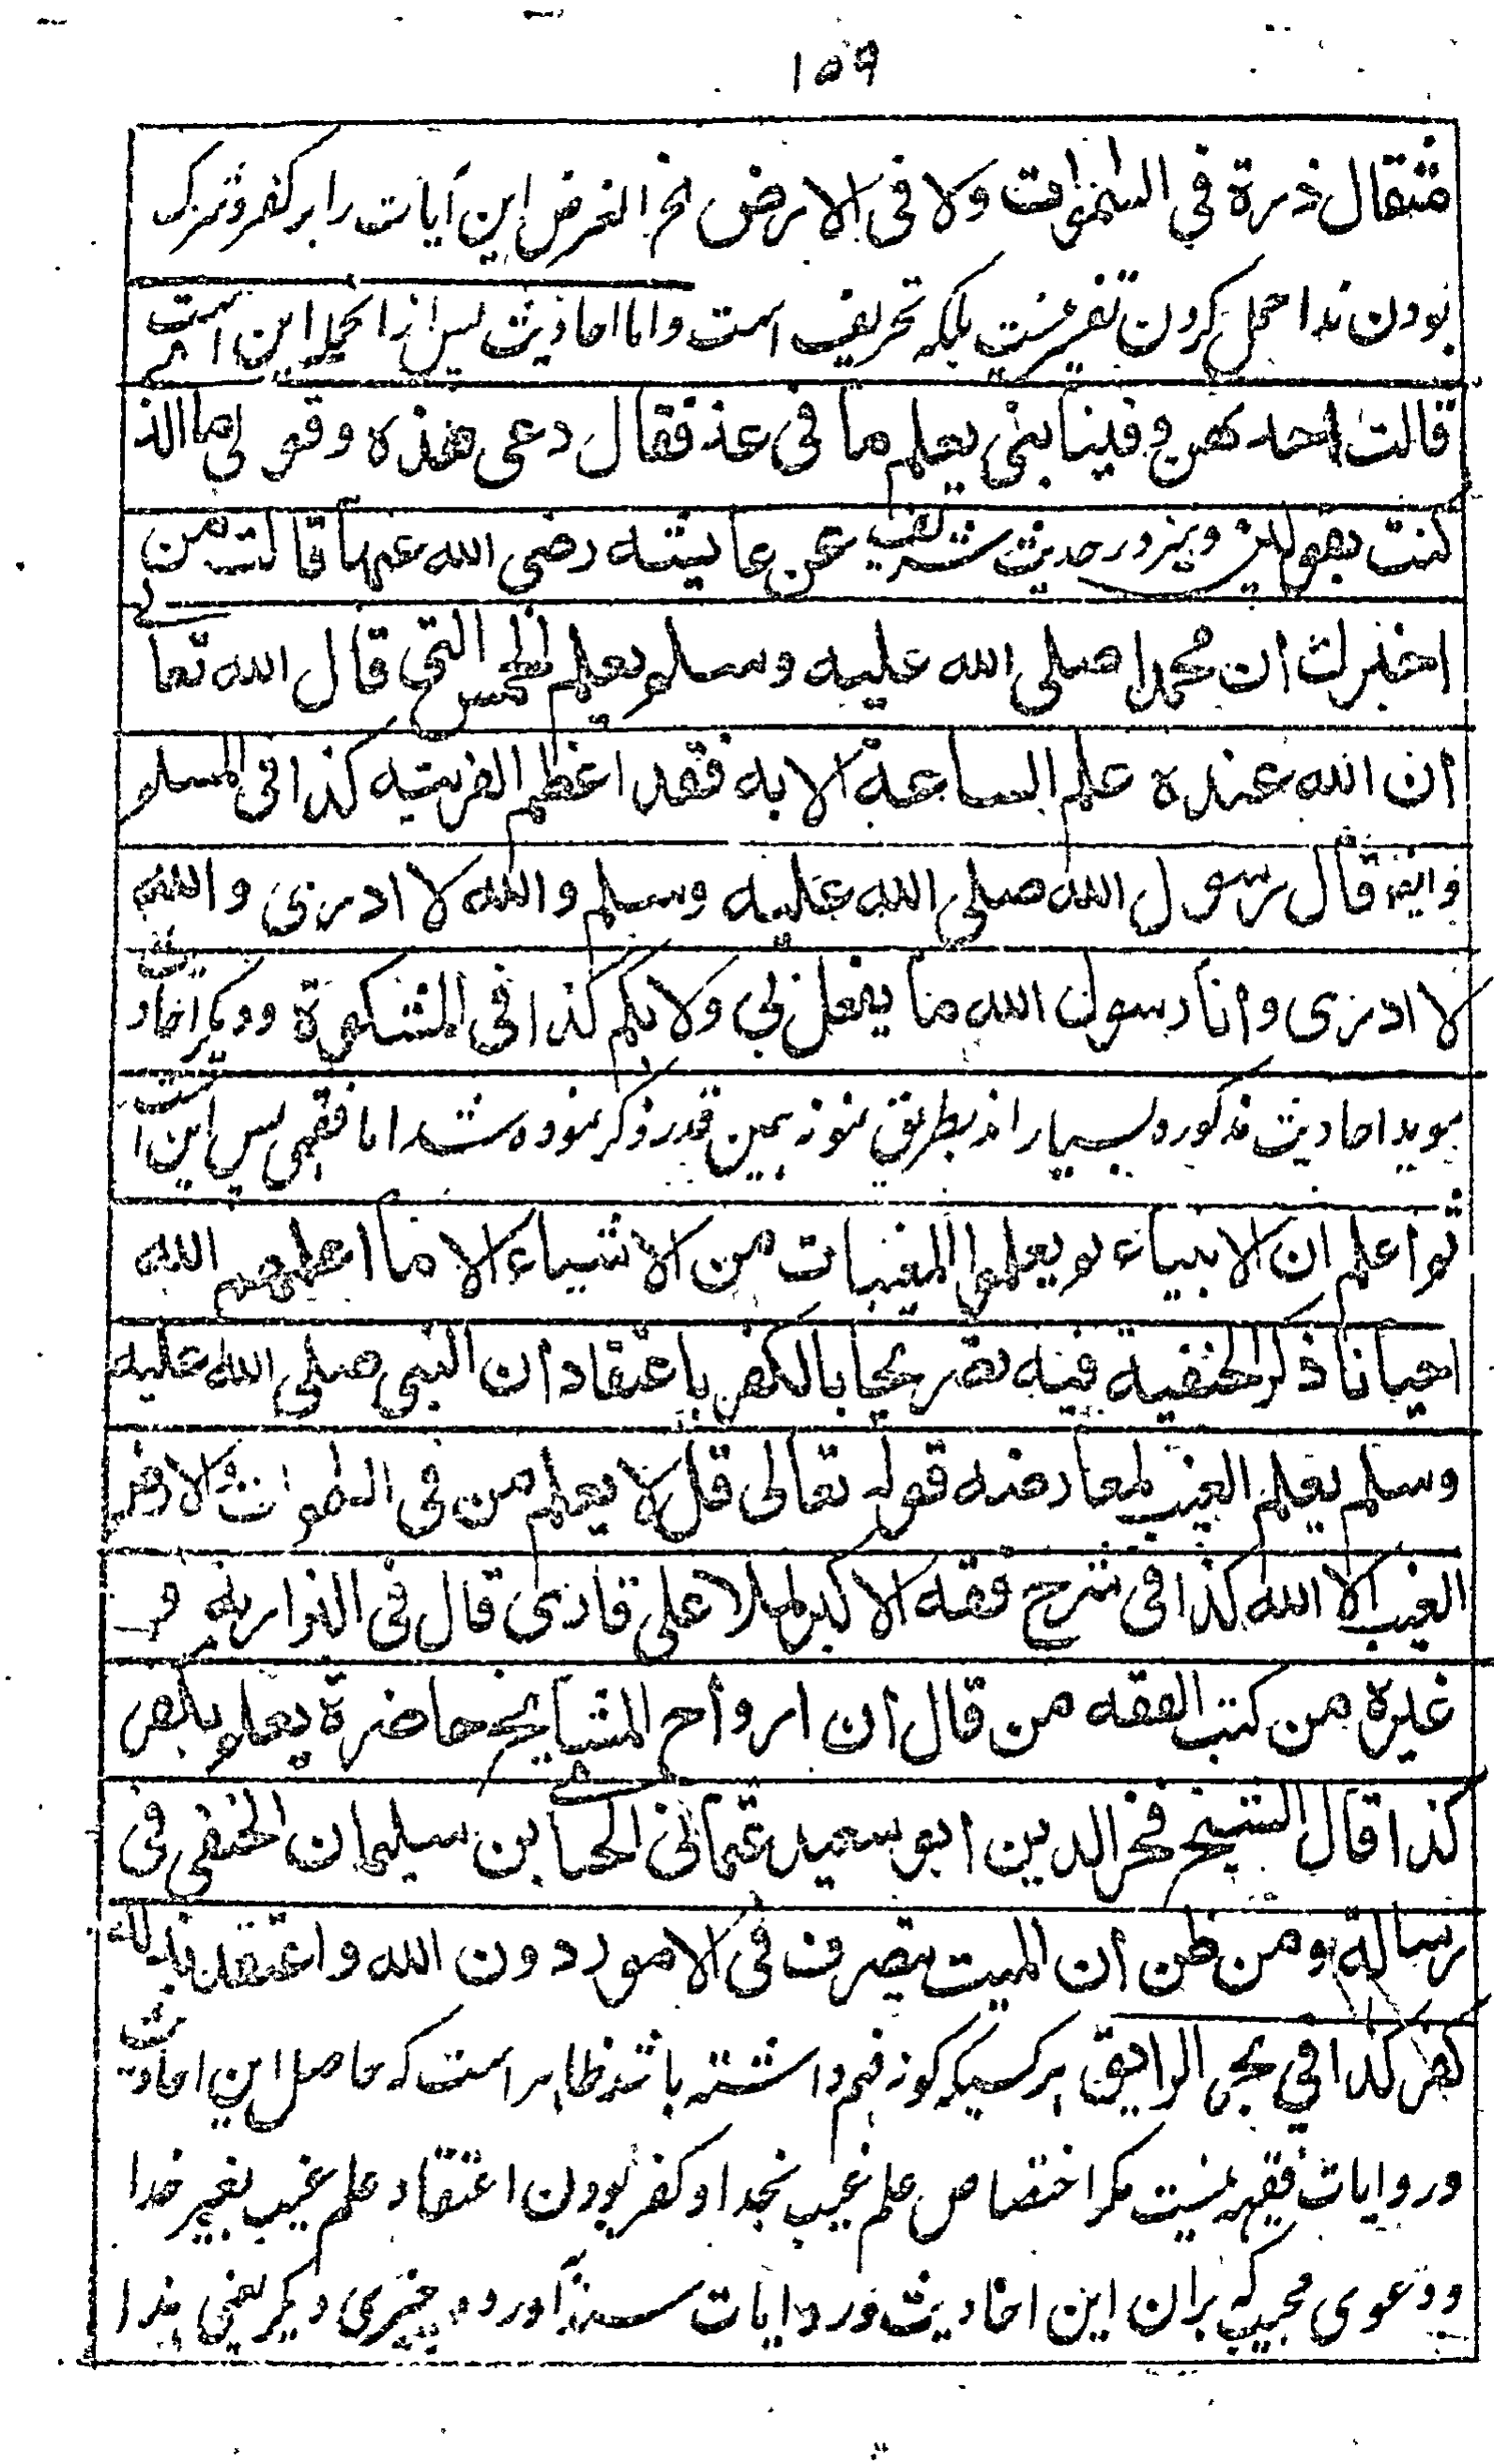 ١٥٩
مثقال ذرة فی السموات ولا فی الارض الخ الغرض این آیات را بر کفر و شرک
بودن ندا حمل کردن تفسیر نیست بلکه تحریف است واما احادیث پس ازانجمله این است
قالت احدهن وفینا نبی یعلم ما فی غد فقال دعی هذه وقولی ما الذی
کنت تقولین ونیز در حدیث شریف عن عایشه رضی الله عنها قالت من
اخبرك ان محمدا صلی الله علیه وسلم یعلم الخمس التی قال الله تعالی
ان الله عنده علم الساعة الایه فقد اعظم الفریته کذا فی المسلم
وایضا قال رسول الله صلی الله علیه وسلم والله لا ادری والله
لا ادری وانا رسول الله ما یفعل بی ولا بکم کذا فی المشکوة ودیگر احادیث
موید احادیث مذکوره بسیار اند بطریق نمونه همین قدر ذکر نموده شد اما فقهی پس این است
ثم اعلم ان الانبیاء لم یعلموا المغیبات من الاشیاء الا ما اعلمهم الله
احیانا ذکر الحنفیة فیه تصریحا بالکفر باعتقاد ان النبی صلی الله علیه
وسلم یعلم الغیب لمعارضه قوله تعالی قل لا یعلم من فی السموات والارض
الغیب الا الله کذا فی شرح فقه الاکبر لملا علی قاری قال فی البزازیه و
غیره من کتب الفقه من قال ان ارواح المشایخ حاضرة یعلم یکفر
کذا قال الشیخ فخر الدین ابو سعید عثمانی الحیا بن سلیمان الحنفی فی
رسالة ومن ظن ان المیت یتصرف فی الامور دون الله واعتقد بذلك
کفر کذا فی بحر الرایق هر کسیکه گونه فهم داشته باشد ظاهر است که حاصل این احادیث
وروایات فقهیه نیست مگر اختصاص علم غیب بخدا وکفر بودن اعتقاد علم غیب بغیر خدا
ودعوی مجیب که بران این احادیث وروایات سنداً آورده چیزی دیگر یعنی ندا